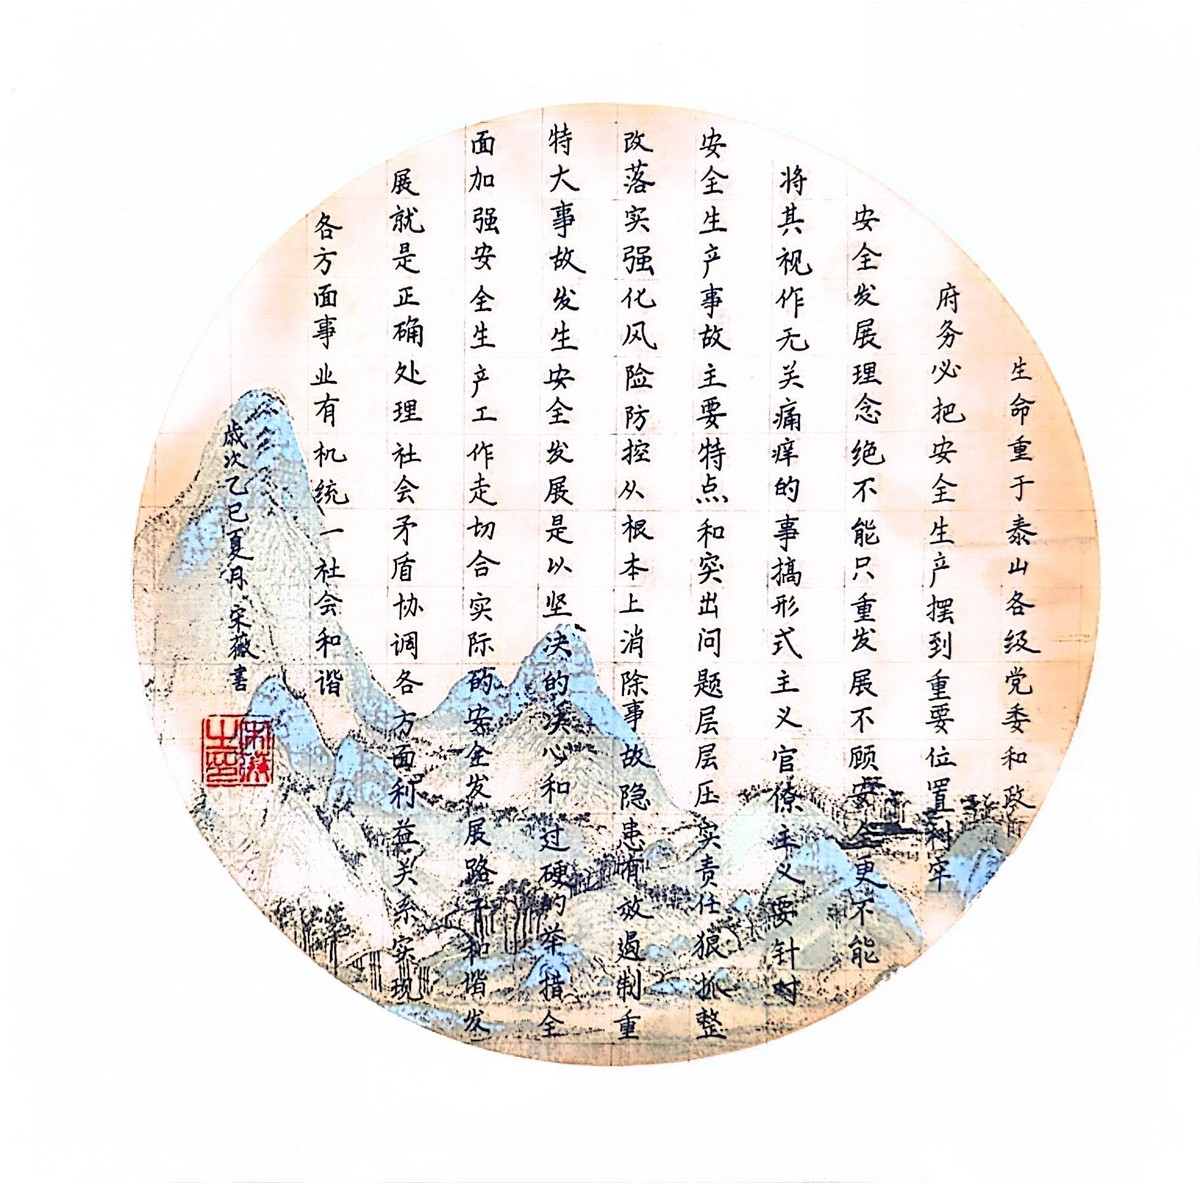 生命重于泰山各级党委和政
府务必把安全生产摆到重要位置树牢
安全发展理念绝不能只重发展不顾安全更不能
将其视作无关痛痒的事搞形式主义官僚主义要针对
安全生产事故主要特点和突出问题层层压实责任狠抓整
改落实强化风险防控从根本上消除事故隐患有效遏制重
特大事故发生安全发展是以坚决的决心和过硬的举措全
面加强安全生产工作走切合实际的安全发展路子和谐发
展就是正确处理社会矛盾协调各方面利益关系实现
各方面事业有机统一社会和谐
歲次乙巳夏月宋薇書